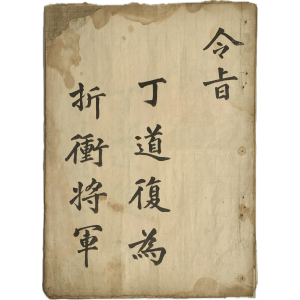 令旨
丁道復為
折衝将軍